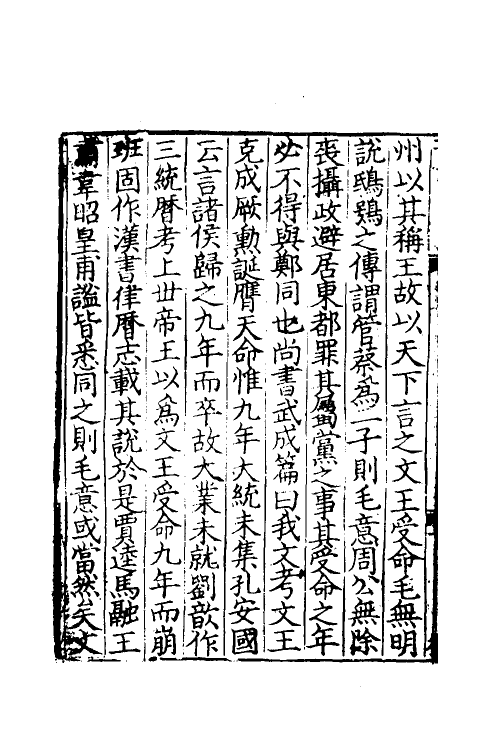 州以其稱王故以天下言之文王受命毛無明
説鴟鴞之傳謂管蔡爲二子則毛意周公無除
喪攝政避居東都罪其屬黨之事其受命之年
必不得與鄭同也尚書武成篇曰我文考文王
克成厥勲誕膺天命惟九年大統未集孔安國
云言諸侯歸之九年而卒故大業未就劉歆作
三統曆考上世帝王以爲文王受命九年而崩
班固作漢書律曆志載其説於是賈逵馬融王
肅韋昭皇甫謐皆悉同之則毛意或當然矣文